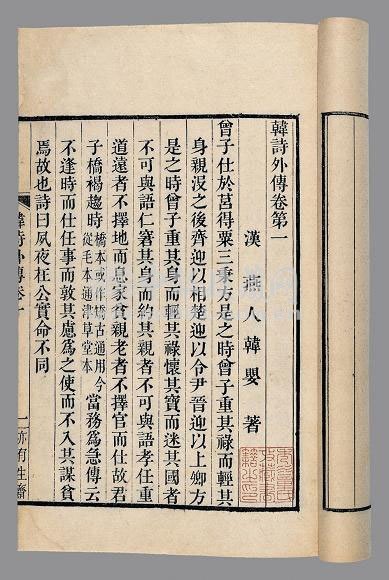 韓詩外傳卷第一
漢 燕人韓嬰 著
曾子仕於莒得粟三秉方是之時曾子重其祿而輕其
身親沒之後齊迎以相楚迎以令尹晉迎以上卿方
是之時曾子重其身而輕其祿懷其寶而迷其國者
不可與語仁窘其身而約其親者不可與語孝任重
道遠者不擇地而息家貧親老者不擇官而仕故君
子橋褐趨時橋本或作矯古通用今從毛本通津草堂本當務為急傳云
不逢時而仕任事而敦其慮為之使而不入其謀貧
焉故也詩曰夙夜在公實命不同
韓詩外傳卷一
一亦有生齋